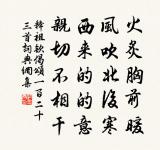 火炙胸前暖
風吹北後寒
西來的的意
親切不相干
釋祖欽偈頌一百二十
三首詞典網集